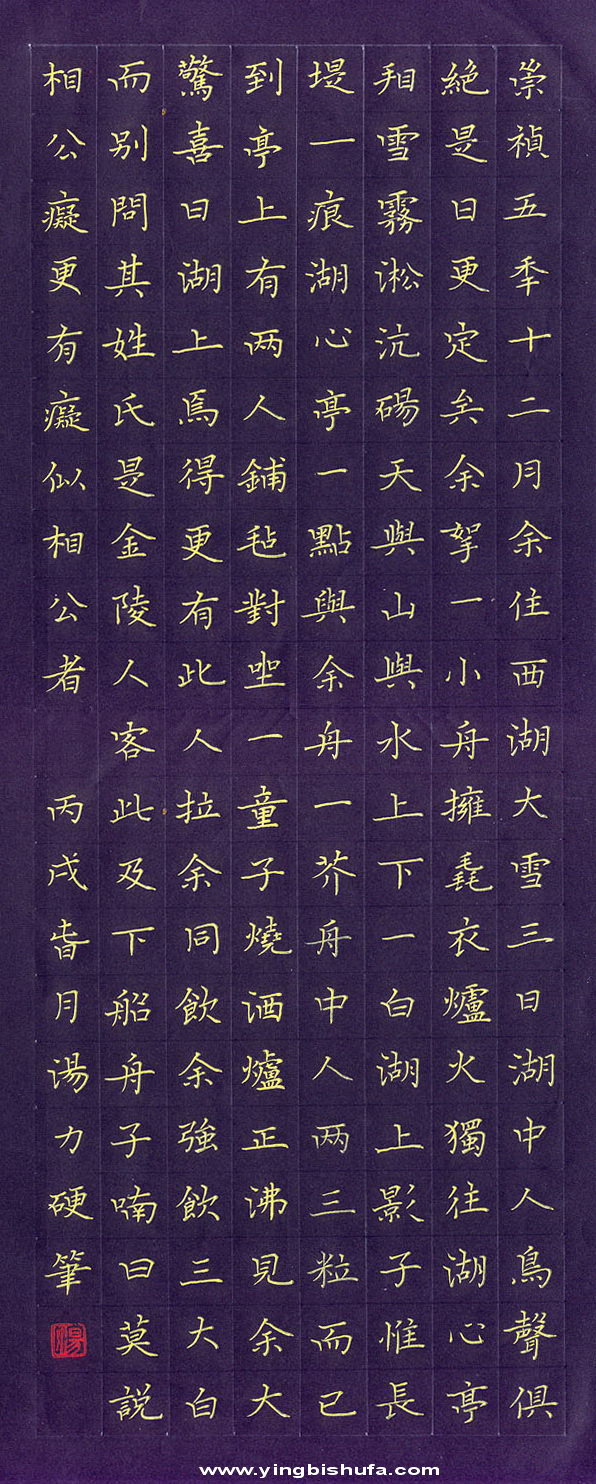 崇禎五秊十二月余住西湖大雪三日湖中人鳥聲俱
絕是日更定矣余拏一小舟擁毳衣爐火獨往湖心亭
看雪霧淞沆碭天與山與水上下一白湖上影子惟長
堤一痕湖心亭一點與余舟一芥舟中人两三粒而已
到亭上有两人鋪毡對坐一童子燒酒爐正沸見余大
驚喜曰湖上焉得更有此人拉余同飲余強飲三大白
而别問其姓氏是金陵人客此及下船舟子喃曰莫說
相公癡更有癡似相公者 丙戌春月湯力硬筆
湯
www.yingbishufa.com